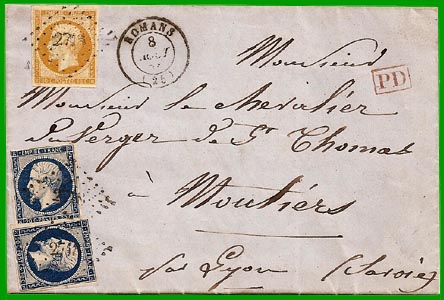 ROMANS
8
(25)
Monsieur
PD
Monsieur le Chevalier
du Verger de St Thomas
à
Moutiers
par Lyon (Savoie)
EMPIRE FRANC